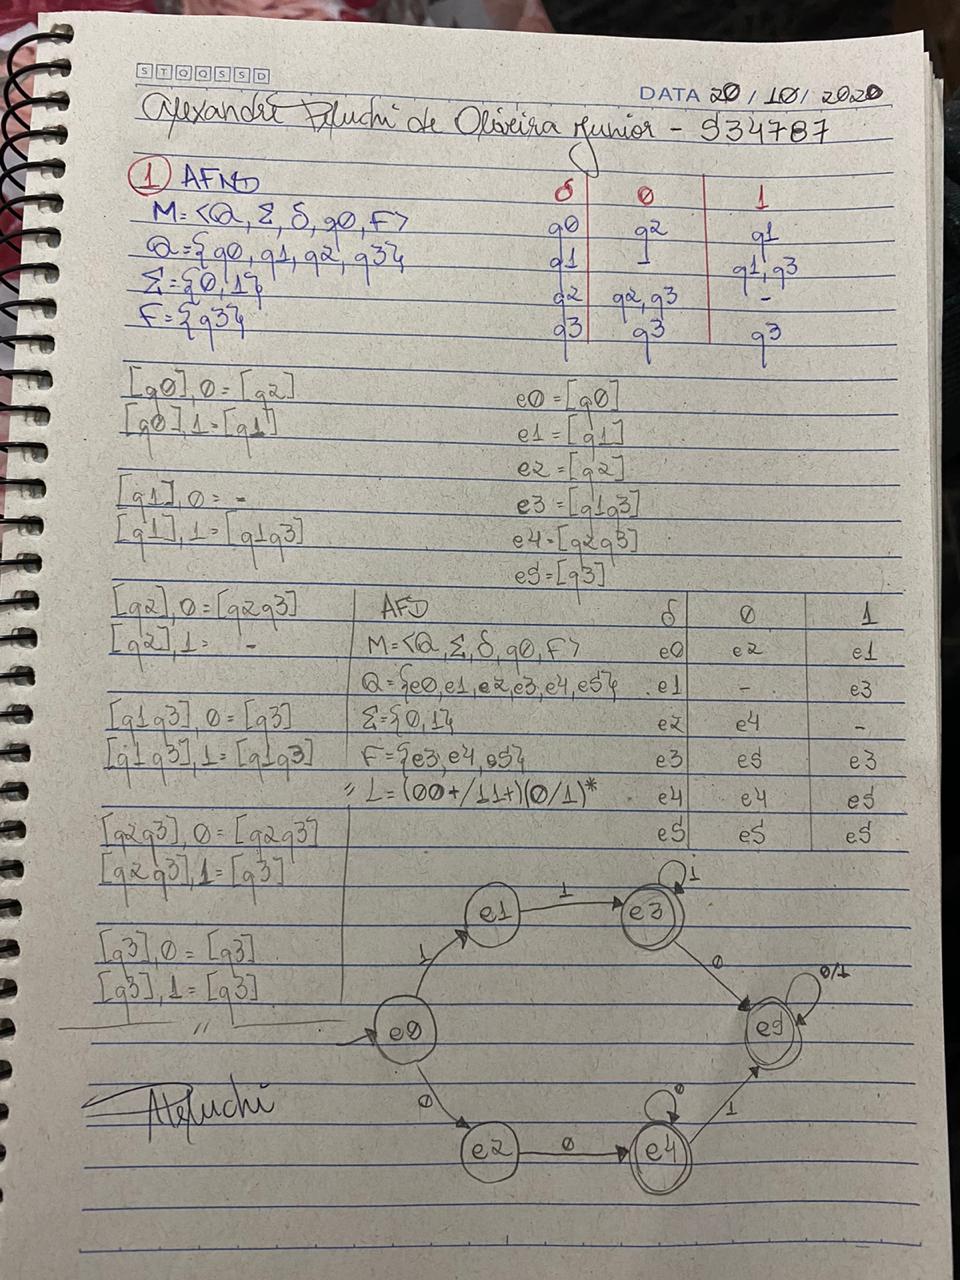 S T Q Q S S D
DATA 20 / 10 / 2020
Alexandre Peluchi de Oliveira Junior - 934787
1 AFND
M = <Q, Σ, δ, q0, F>
Q = {q0, q1, q2, q3}
Σ = {0, 1}
F = {q3}
δ 0 1
q0 q2 q1
q1 - q1, q3
q2 q2, q3 -
q3 q3 q3
[q0], 0 = [q2]
[q0], 1 = [q1]
[q1], 0 = -
[q1], 1 = [q1q3]
e0 = [q0]
e1 = [q1]
e2 = [q2]
e3 = [q1q3]
e4 = [q2q3]
e5 = [q3]
[q2], 0 = [q2q3]
[q2], 1 = -
[q1q3], 0 = [q3]
[q1q3], 1 = [q1q3]
[q2q3], 0 = [q2q3]
[q2q3], 1 = [q3]
[q3], 0 = [q3]
[q3], 1 = [q3]
AFD
M = <Q, Σ, δ, q0, F>
Q = {e0, e1, e2, e3, e4, e5}
Σ = {0, 1}
F = {e3, e4, e5}
L = (00+/11+)(0/1)*
δ 0 1
e0 e2 e1
e1 - e3
e2 e4 -
e3 e5 e3
e4 e4 e5
e5 e5 e5
1
e1 1 e3
1 0 0/1
e0 e5
0 0 1
e2 0 e4